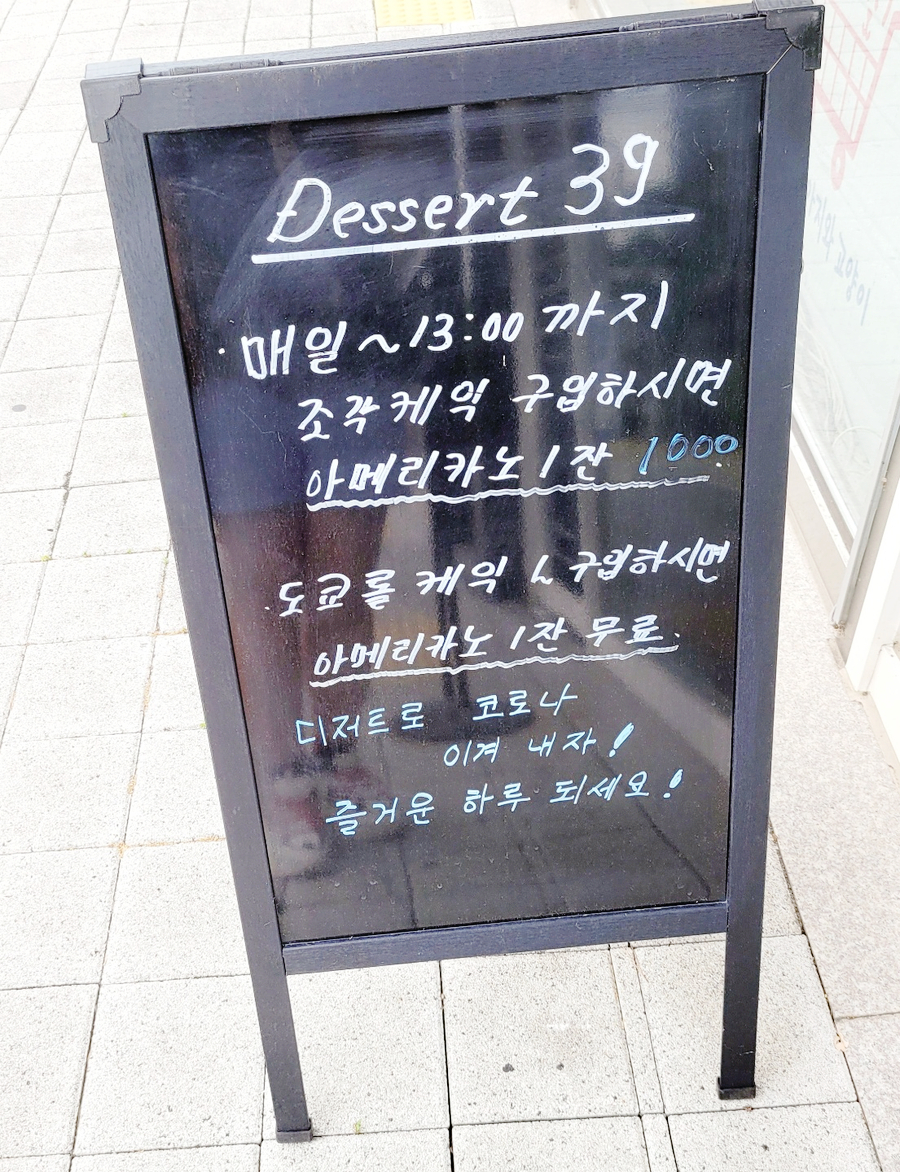 Dessert 39
· 매일 ~13:00 까지
조각케익 구입하시면
아메리카노 1잔 1000
· 도쿄롤 케익 구입하시면
아메리카노 1잔 무료.
디저트로 코로나
이겨 내자!
즐거운 하루 되세요!